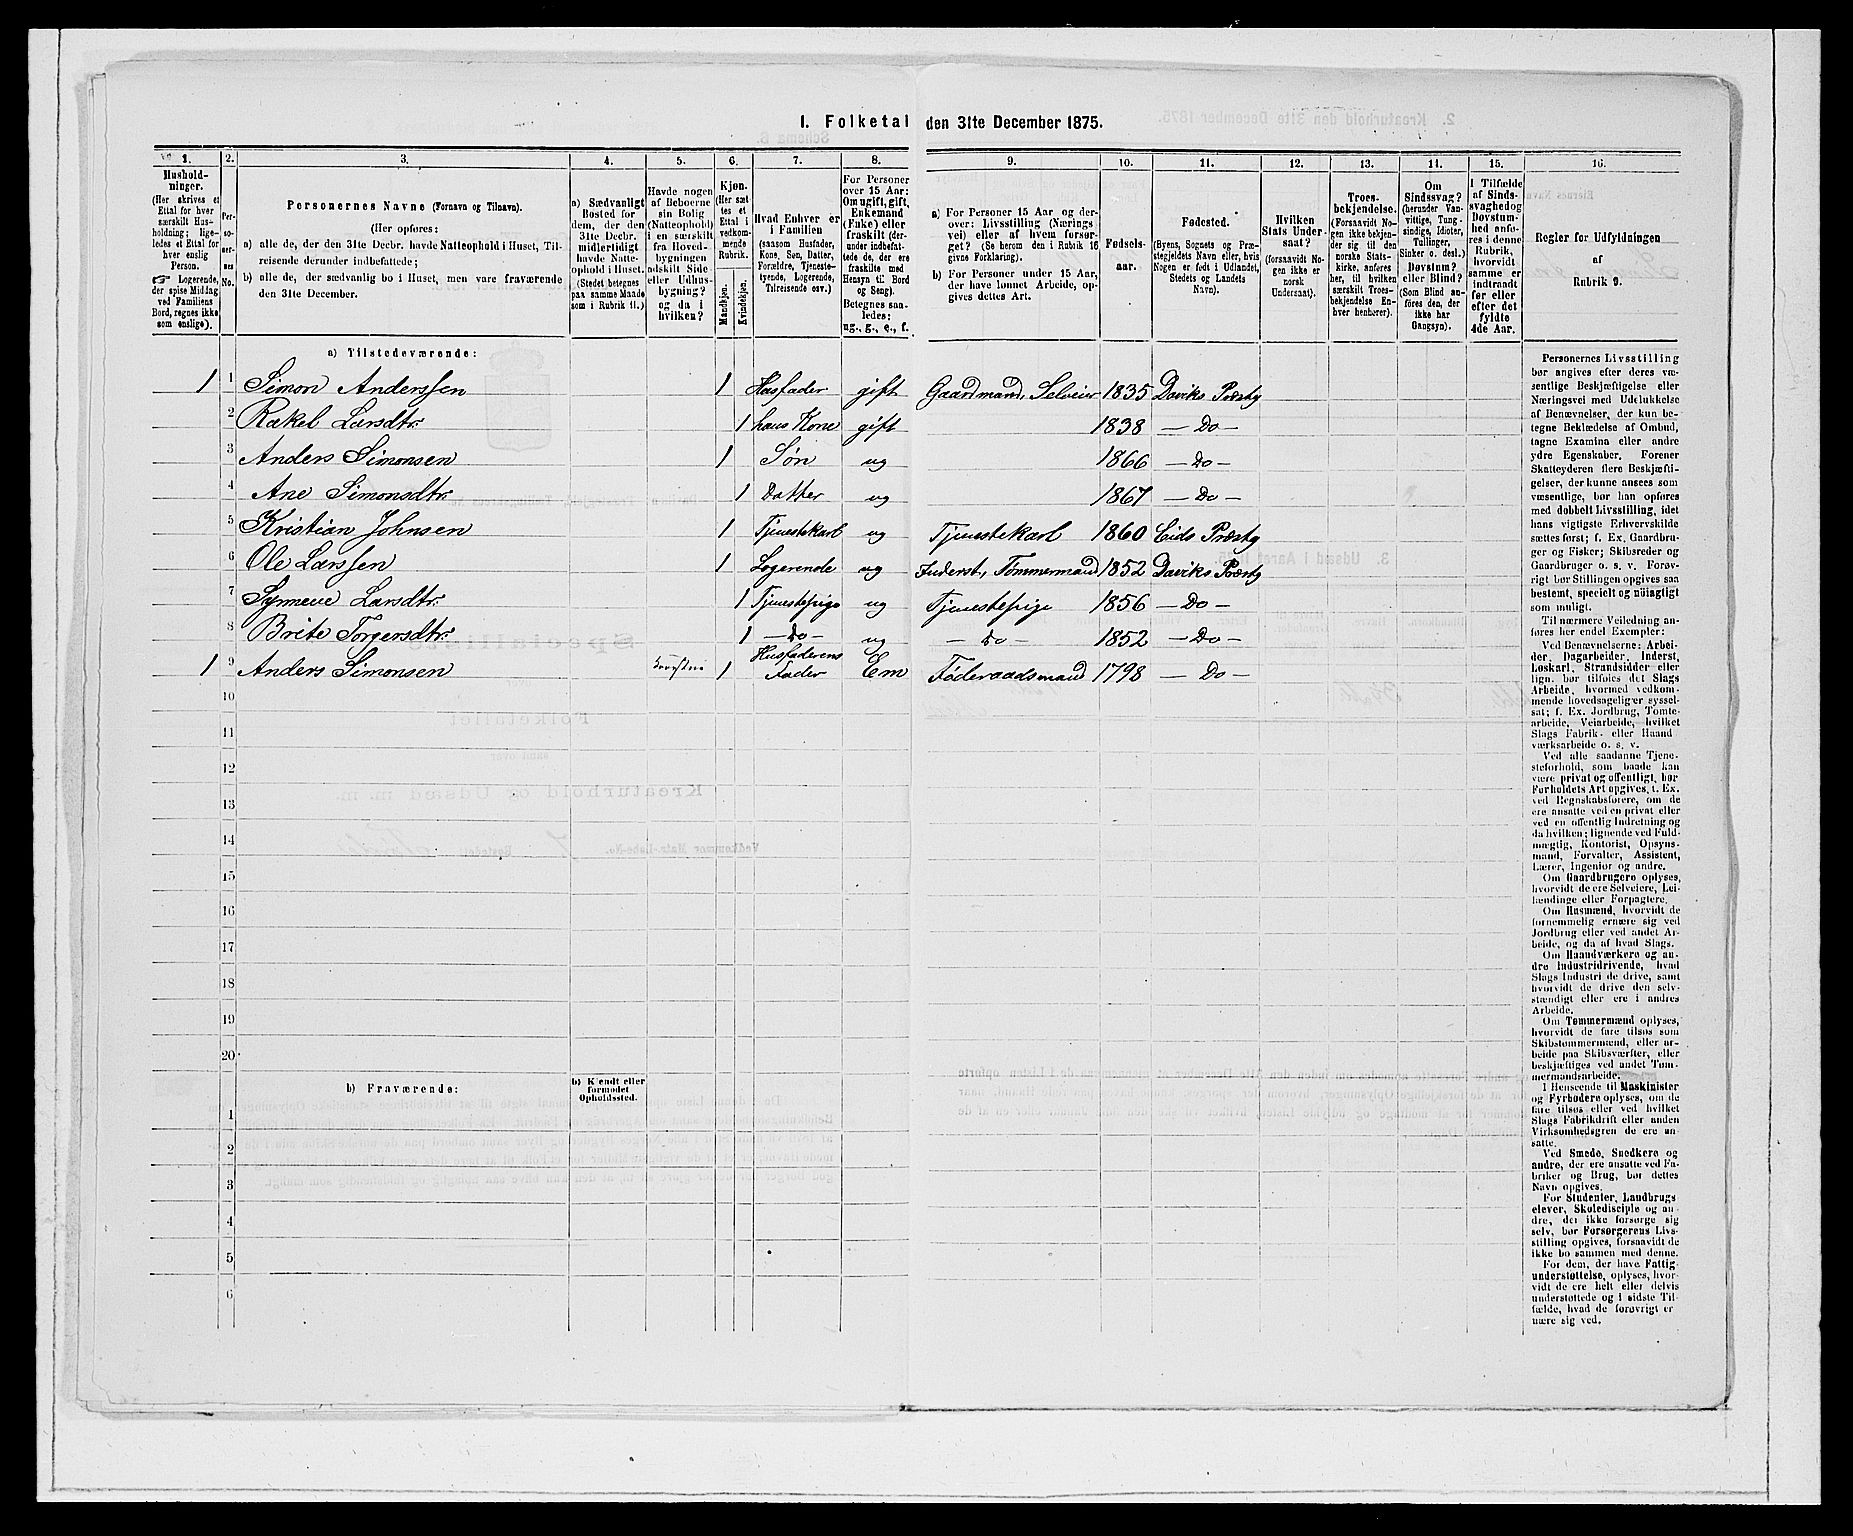 1. Folketal den 31te December 1875.
1. 2. 3. 4. 5. 6. 7. 8. 9. 10. 11. 12. 13. 14. 15. 16.
Hushold-
ninger.
(Her skrives et
Ettal for hver
særskilt Hus-
holdning; lige-
ledes et Ettal for
hver enslig
Person.
☞ Logerende,
der spise Middag
ved Familiens
Bord, regnes ikke
som enslige).
Per-
so-
ner-
nes
No.
Personernes Navne (Fornavn og Tilnavn).
(Her opføres:
a) alle de, der den 31te Decbr. havde Natteophold i Huset, Til-
reisende derunder indbefattede;
b) alle de, der sædvanlig bo i Huset, men vare fraværende
den 31te December.
a) Sædvanligt
Bosted for
dem, der den
31te Decbr.
midlertidigt
havde Natte-
ophold i Huset.
(Stedet betegnes
paa samme Maade
som i Rubrik 11.)
Havde nogen
af Beboerne
sin Bolig
(Natteophold)
i en særskilt
fra Hoved-
bygningen
adskilt Side-
eller Udhus-
bygning?
og da i
hvilken?
Kjøn.
(Her sæt-
tes et
Ettal i
vedkom-
mende
Rubrik.
Mandkjøn.
Kvindekjøn.
Hvad Enhver er
i Familien
(saasom Husfader,
Kone, Søn, Datter,
Forældre, Tjeneste-
tyende, Logerende,
Tilreisende osv.)
For Personer
over 15 Aar:
Om ugift, gift,
Enkemand
(Enke) eller
fraskilt (der-
under indbefat-
tede de, der ere
fraskilte med
Hensyn til Bord
og Seng).
Betegnes saa-
ledes:
ug., g., e., f.
a) For Personer 15 Aar og der-
over: Livsstilling (Nærings-
vei) eller af hvem forsør-
get? (Se herom den i Rubrik 16
givne Forklaring).
b) For Personer under 15 Aar,
der have lønnet Arbeide, op-
gives dettes Art.
Fødsels-
aar.
Fødested.
(Byens, Sognets og Præ-
stegjeldets Navn eller, hvis
Nogen er født i Udlandet,
Stedets og Landets
Navn).
Hvilken
Stats Under-
saat?
(forsaavidt No-
gen ikke er
norsk
Undersaat).
Troes-
bekjendelse.
(Forsaavidt No-
gen ikke bekjen-
der sig til den
norske Stats-
kirke, anføres
her, til hvilken
særskilt Troes-
bekjendelse En-
hver henhører).
Om
Sindssvag?
(herunder Van-
vittige, Tung-
sindige, Idioter,
Tullinger,
Sinker o. desl.)
Døvstum?
eller Blind?
(Som Blind an-
føres den, der
ikke har
Gangsyn).
I Tilfælde
af Sinds-
svaghed og
Døvstum-
hed anfø-
res i denne
Rubrik,
hvorvidt
samme er
indtraadt
før eller
efter det
fyldte
4de Aar.
Regler for Udfyldningen
af
Rubrik 9.
a) Tilstedeværende:
1 1 Simon Anderssen 1 Husfader gift Gaardmand, Selveier 1835 Daviks Præstg
2 Rakel Larsdtr. 1 hans Kone gift 1838 — Do —
3 Anders Simonsen 1 Søn ug 1866 — Do —
4 Ane Simonsdtr. 1 Datter ug 1867 — Do —
5 Kristian Johnsen 1 Tjenestekarl ug Tjenestekarl 1860 Eids Præstg
6 Ole Larssen 1 Logerende ug Inderst, Tømmermand 1852 Daviks Præstg
7 Synneve Larsdtr. 1 Tjenestepige ug Tjenestepige 1856 — Do —
8 Brite Torgersdtr. 1 — Do — ug — Do — 1852 — Do —
1 9 Anders Simonsen 1 Husfaderens Fader Em Føderaadsmand 1798 — Do —
10
11
12
13
14
15
16
17
18
19
20
b) Fraværende:
b) Kjendt eller
formodet
Opholdssted.
1
2
3
4
5
6
Personernes Livsstilling
bør angives efter deres væ-
sentlige Beskjæftigelse eller
Næringsvei med Udelukkelse
af Benævnelser, der kun be-
tegne Beklædelse af Ombud,
tagne Examina eller andre
ydre Egenskaber. Forener
Skatteyderen flere Beskjæfti-
gelser, der kunne ansees som
væsentlige, bør han opføres
med dobbelt Livsstilling, idet
hans vigtigste Erhvervskilde
sættes først; f. Ex. Gaardbru-
ger og Fisker; Skibsreder og
Gaardbruger o. s. v. Forøv-
rigt bør Stillingen opgives saa
bestemt, specielt og nøiagtigt
som muligt.
Til nærmere Veiledning an-
føres her endel Exempler:
Ved Benævnelserne: Arbei-
der, Dagarbeider, Inderst,
Løskarl, Strandsidder eller
lign. bør tilføies det Slags
Arbeide, hvormed vedkom-
mende hovedsagelig er syssel-
sat; f. Ex. Jordbrug, Tomte-
arbeide, Veiarbeide, hvilket
Slags Fabrik- eller Haand
værksarbeide o. s. v.
Ved alle saadanne Tjene-
steforhold, som baade kan
være privat og offentligt, bør
Forholdets Art opgives, t. Ex.
ved Regnskabsførere, om de
ere ansatte ved en privat eller
ved en offentlig Indretning og
da hvilken; lignende ved Fuld-
mægtig, Kontorist, Opsyns-
mand, Forvalter, Assistent,
Lærer, Ingeniør og andre.
Om Gaardbrugere oplyses,
hvorvidt de ere Selveiere, Lei-
lændinge eller Forpagtere.
Om Husmænd, hvorvidt de
fornemmelig ernære sig ved
Jordbrug eller ved andet Ar-
beide, og da af hvad Slags.
Om Haandværkere og an-
dre Industridrivende, hvad
Slags Industri de drive, samt
hvorvidt de drive den selv-
stændigt eller ere i andres
Arbeide.
Om Tømmermænd oplyses,
hvorvidt de fare tilsøs som
Skibstømmermænd, eller ar-
beide paa Skibsværfter, eller
beskjæftiges ved andet Tøm-
mermandsarbeide.
I Henseende til Maskinister
og Fyrbødere oplyses, om de
fare tilsøs eller ved hvilket
Slags Fabrikdrift eller anden
Virksomhedsgren de ere an-
satte.
Ved Smede, Snedkere og
andre, der ere ansatte ved Fa-
briker og Brug, bør dettes
Navn opgives.
For Studenter, Landbrugs-
elever, Skoledisciple og an-
dre, der ikke forsørge sig
selv, bør Forsørgerens Livs-
stilling opgives, forsaavidt de
ikke bo sammen med denne.
For dem, der have Fattig-
understøttelse, oplyses, hvor-
vidt de ere helt eller delvis
understøttede og i sidste Til-
fælde, hvad de forøvrigt er
nære sig ved.